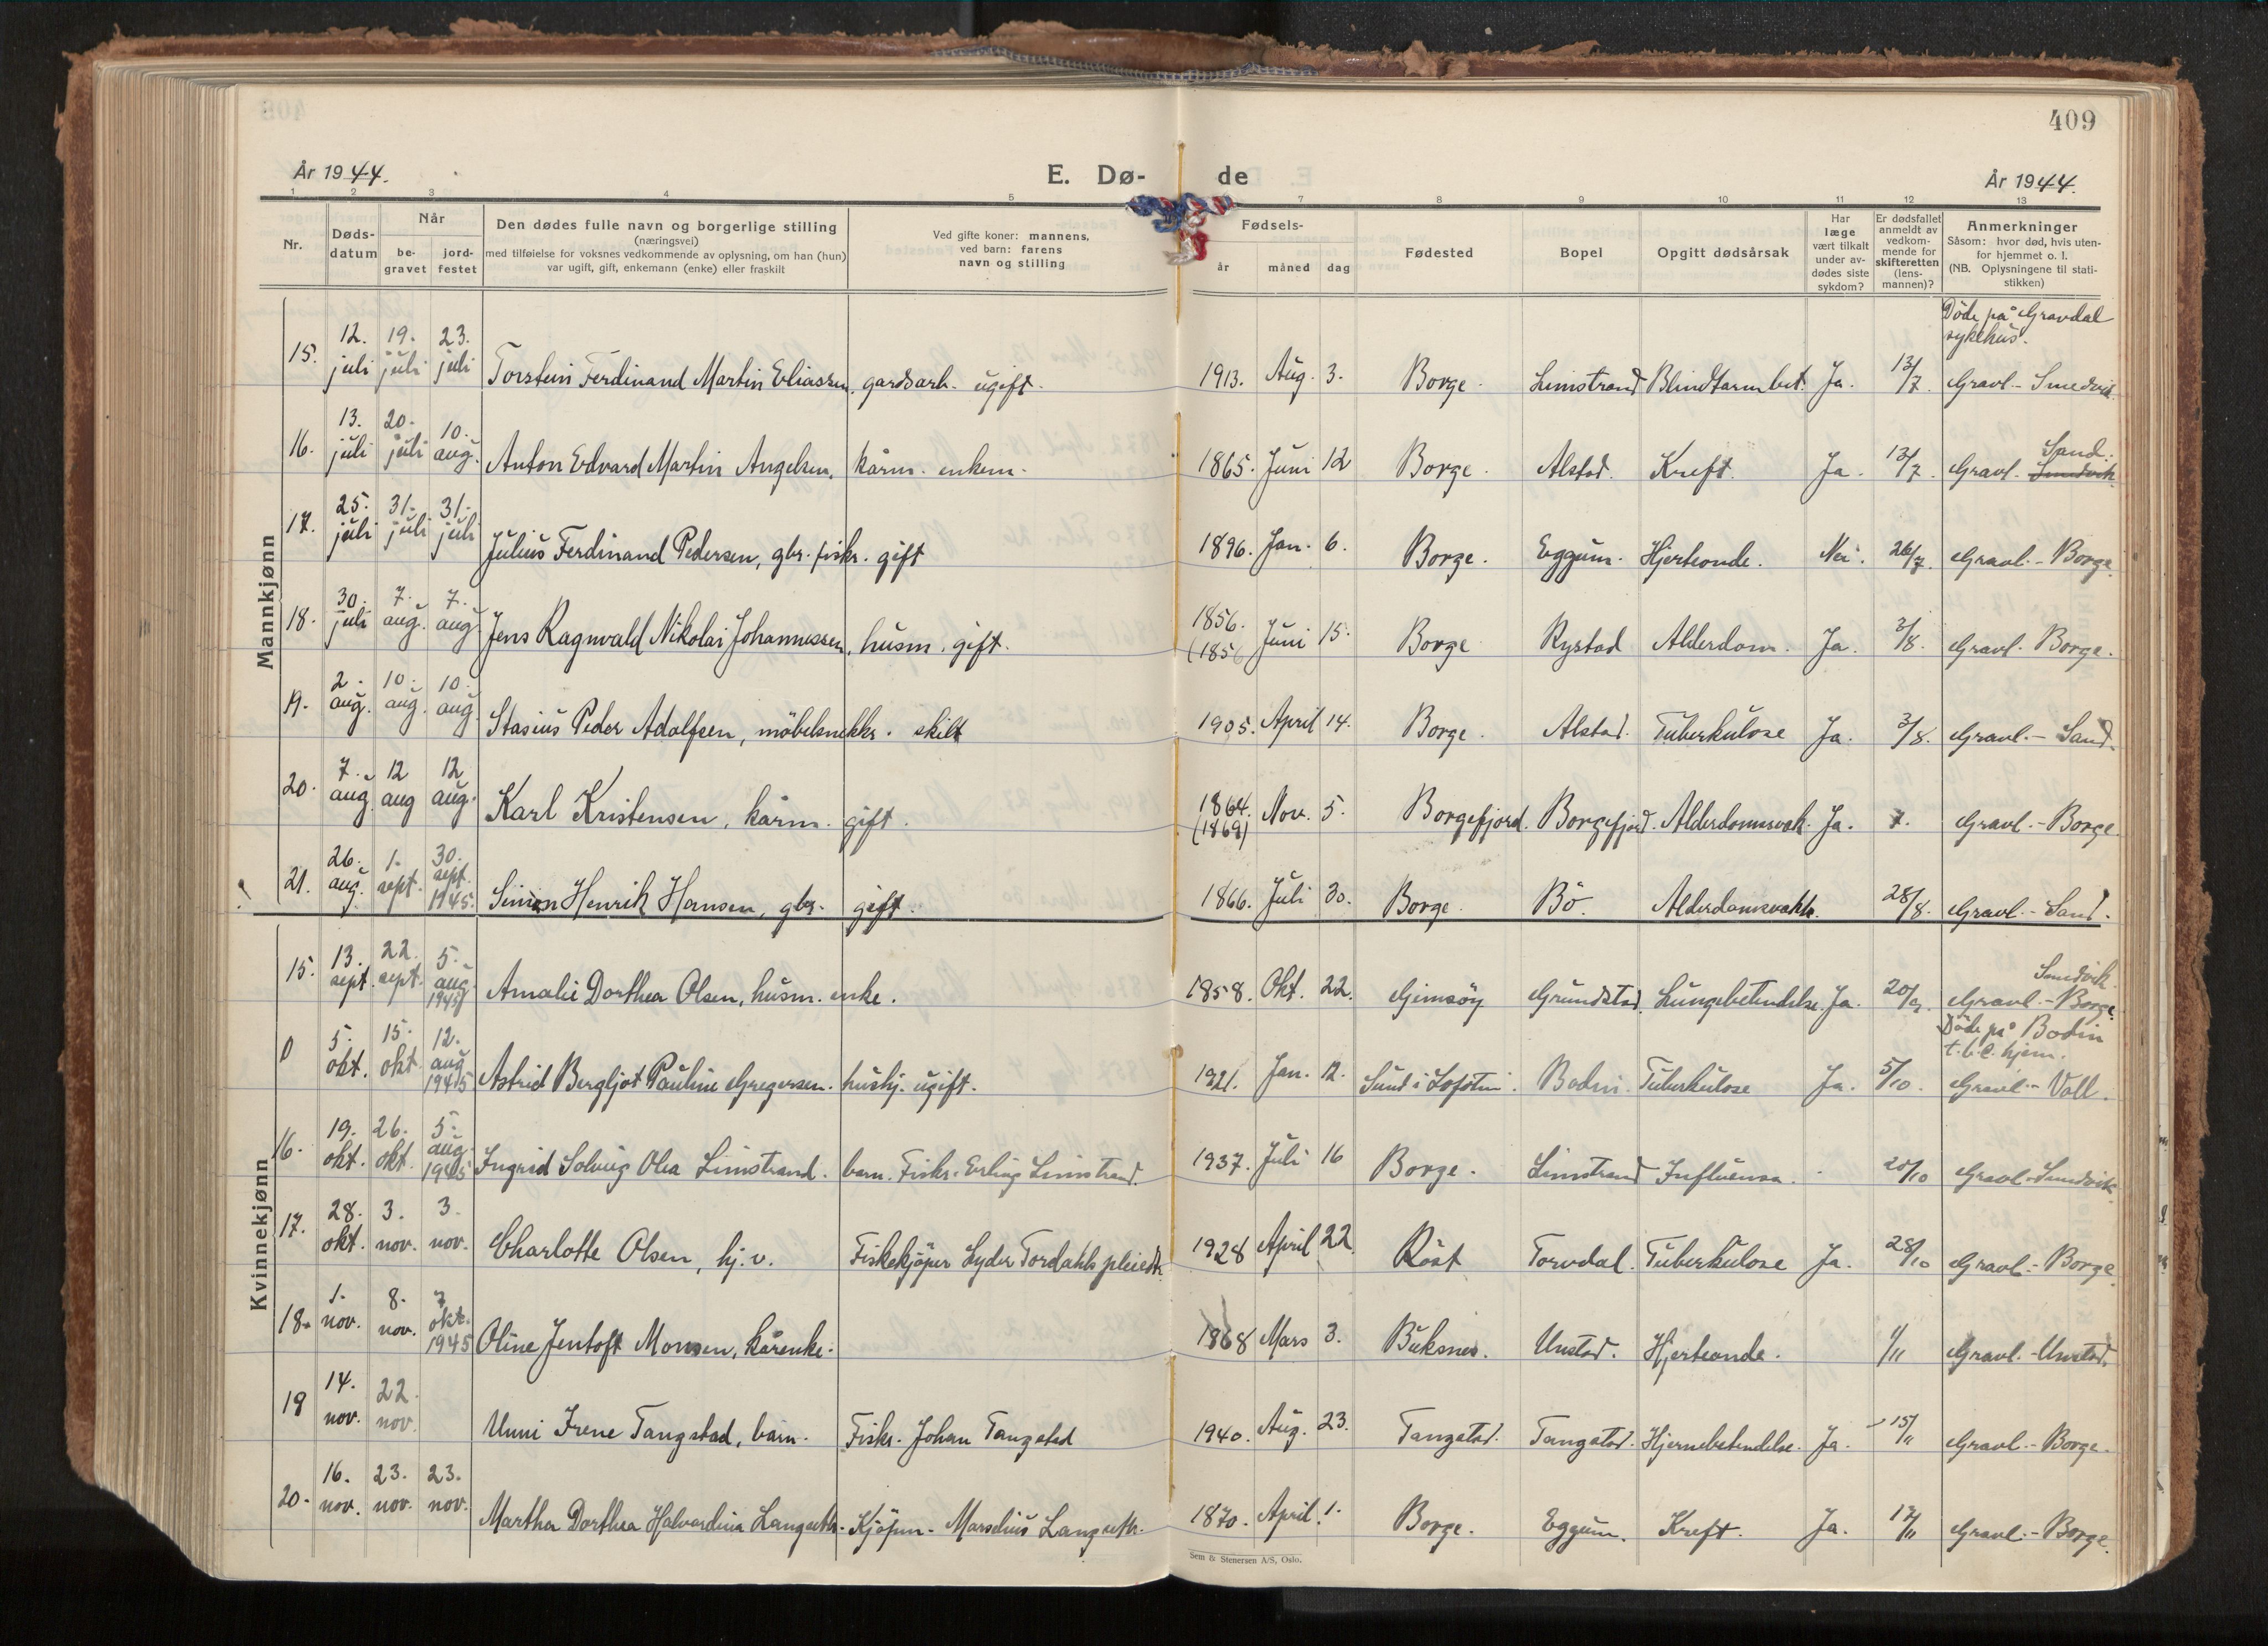 409
År 1944.
E. Dø-
de
År 1944.
1 2 3 4 5 7 8 9 10 11 12 13
Nr.
Døds-
datum
Når
be-
gravet
jord-
festet
Den dødes fulle navn og borgerlige stilling
(næringsvei)
med tilføielse for voksnes vedkommende av oplysning, om han (hun)
var ugift, gift, enkemann (enke) eller fraskilt
Ved gifte koner: mannens,
ved barn: farens
navn og stilling
Fødsels-
år måned dag
Fødested
Bopel
Opgitt dødsårsak
Har
læge
vært tilkalt
under av-
dødes siste
sykdom?
Er dødsfallet
anmeldt av
vedkom-
mende for
skifteretten
(lens-
mannen)?
Anmerkninger
Såsom: hvor død, hvis uten-
for hjemmet o. l.
(NB. Oplysningene til stati-
stikken)
Mannkjønn
Døde på Gravdal
sykehus.
12. 19. 23.
15. juli juli juli Torstein Ferdinand Martin Eliassen, gardsarb. ugift. 1913. Aug. 3. Borge. Limstrand Blindtarmbet. Ja. 13/7 Gravl. - Smedvik
13. 20. 10. Sand.
16. juli juli aug. Anton Edvard Martin Angelsen, kårm. enkem. 1865. Juni 12 Borge. Alstad. Kreft. Ja. 13/7. Gravl. Smedvik.
25. 31. 31.
17. juli juli juli Julius Ferdinand Pedersen, gbr. fiskr. gift 1896. Jan. 6. Borge. Eggum. Hjerteonde. Nei. 26/7. Gravl. - Borge.
30. 7. 7. 1856.
18. juli aug. aug. Jens Ragnvald Nikolai Johannessen, husm. gift. (1856 Juni 15. Borge Rystad Alderdom. Ja. 3/8. Gravl. Borge.
2. 10. 10.
19. aug. aug. aug. Stasius Peder Adolfsen, möbelsnekkr. skilt 1905. April 14. Borge. Alstad. Tuberkulose Ja. 3/8. Gravl. - Sand.
7. 12 12
20. aug. aug aug. Karl Kristensen, kårm. gift. 1864. Nov. 5. Borgefjord. Borgefjord. Alderdomsvak. Ja. 7. Gravl. - Borge.
(1869)
26. 1. 30.
21. aug. sept. sept. 1945. Simon Henrik Hansen, gbr. gift. 1866. Juli 30. Borge. Bö. Alderdomsvakh. 28/8. Gravl. - Sand.
Kvinnekjønn
13. 22. 5. Smedvik.
15. sept. sept. aug. 1945 Amalie Dorthea Olsen, husm. enke. 1858. Okt. 22. Gimsöy Grundstad. Lungebetendelse. Ja. 20/9. Gravl. - Borge.
Döde på Bodin
t.b.c. hjem.
5. 15. 12.
0 okt. okt. aug 1945 Astrid Bergljot Pauline Gregersen. hushj. ugift. 1921. Jan. 12. Sund i Lofoten. Bodin. Tuberkulose Ja. 5/10. Gravl. - Voll.
19. 26. 5.
16. okt. okt. aug 1945 Ingrid Solveig Olea Limstrand. barn. Fiskr. Erling Limstrand. 1937. Juli 16 Borge. Limstrand Influensa. 20/10 Gravl. - Smedvik.
28. 3. 3.
17. okt. nov. nov. Charlotte Olsen, hj. v. Fiskekjöper Lyder Tordahls pleiedtr. 1928 April 22. Röst Torvdal. Tuberkulose Ja. 28/10 Gravl. - Borge.
1. 8. 7
18. nov. nov. okt. 1945 Oline Jentoft Monsen, kårenke. 1868 Mars 3. Buksnes. Unstad. Hjerteonde. 1/11 Gravl. - Unstad.
14. 22.
19 nov. nov. Unni Irene Tangstad, barn. Fiskr. Johan Tangstad 1940. Aug. 23. Tangstad. Tangstad. Hjernebetendelse. Ja. 15/11 Gravl. - Borge.
16. 23. 23.
20. nov. nov. nov. Martha Dorthea Halvardina Langseth. Kjöpm. Marselius Langseth. 1870. April 1. Borge. Eggum. Kreft. Ja. 17/11 Gravl. - Borge.
Sem & Stenersen A/S, Oslo.